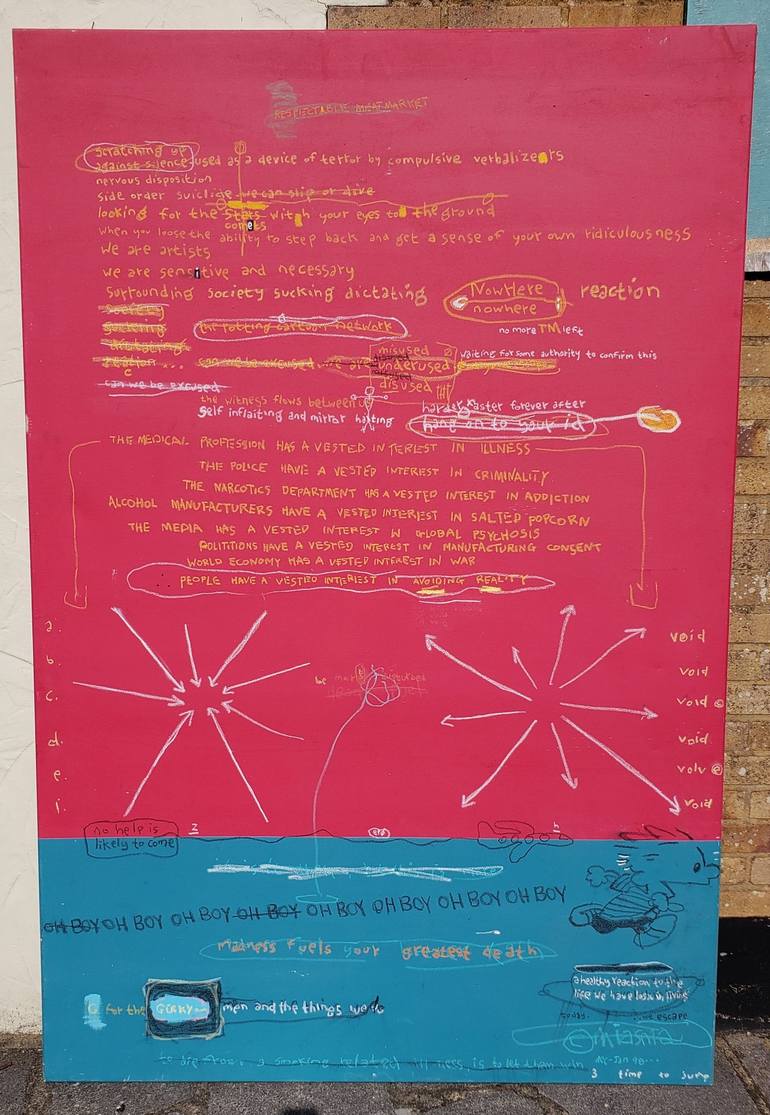 RESPECTABLE MEATMARKET
scratching up
against science used as a device of terror by compulsive verbalizears
nervous disposition
side order suicide we can slip or dive
looking for the stars with your eyes to the ground
comets
when you loose the ability to step back and get a sense of your own ridiculousness
we are artists
we are sensitive and necessary
surrounding society sucking dictating
NowHere
nowhere
reaction
no more TM left
society
sucking
dictating
reaction...
the rotting cartoon network
can we be excused we are
misused
underused
disused
waiting for some authority to confirm this
can we be excused
the witness flows between us
self inflaiting and mirror hatting
harder faster forever after
hang on to your id
THE MEDICAL PROFESSION HAS A VESTED INTEREST IN ILLNESS
THE POLICE HAVE A VESTED INTEREST IN CRIMINALITY
THE NARCOTICS DEPARTMENT HAS A VESTED INTEREST IN ADDICTION
ALCOHOL MANUFACTURERS HAVE A VESTED INTEREST IN SALTED POPCORN
THE MEDIA HAS A VESTED INTEREST IN GLOBAL PSYCHOSIS
POLITITIONS HAVE A VESTED INTEREST IN MANUFACTURING CONSENT
WORLD ECONOMY HAS A VESTED INTEREST IN WAR
PEOPLE HAVE A VESTED INTERIEST IN AVOIDING REALITY
a.
b.
c.
d.
e.
f.
be
void
void
void @
void
volv @
void
no help is
likely to come
OH BOY OH BOY OH BOY OH BOY OH BOY OH BOY OH BOY OH BOY
madness fuels your greatest death
G for the GEEKY men and the things we do
a healthy reaction to the
life we have living
today. escape
to die from a smoking related illness is to let them win
3 time to jump